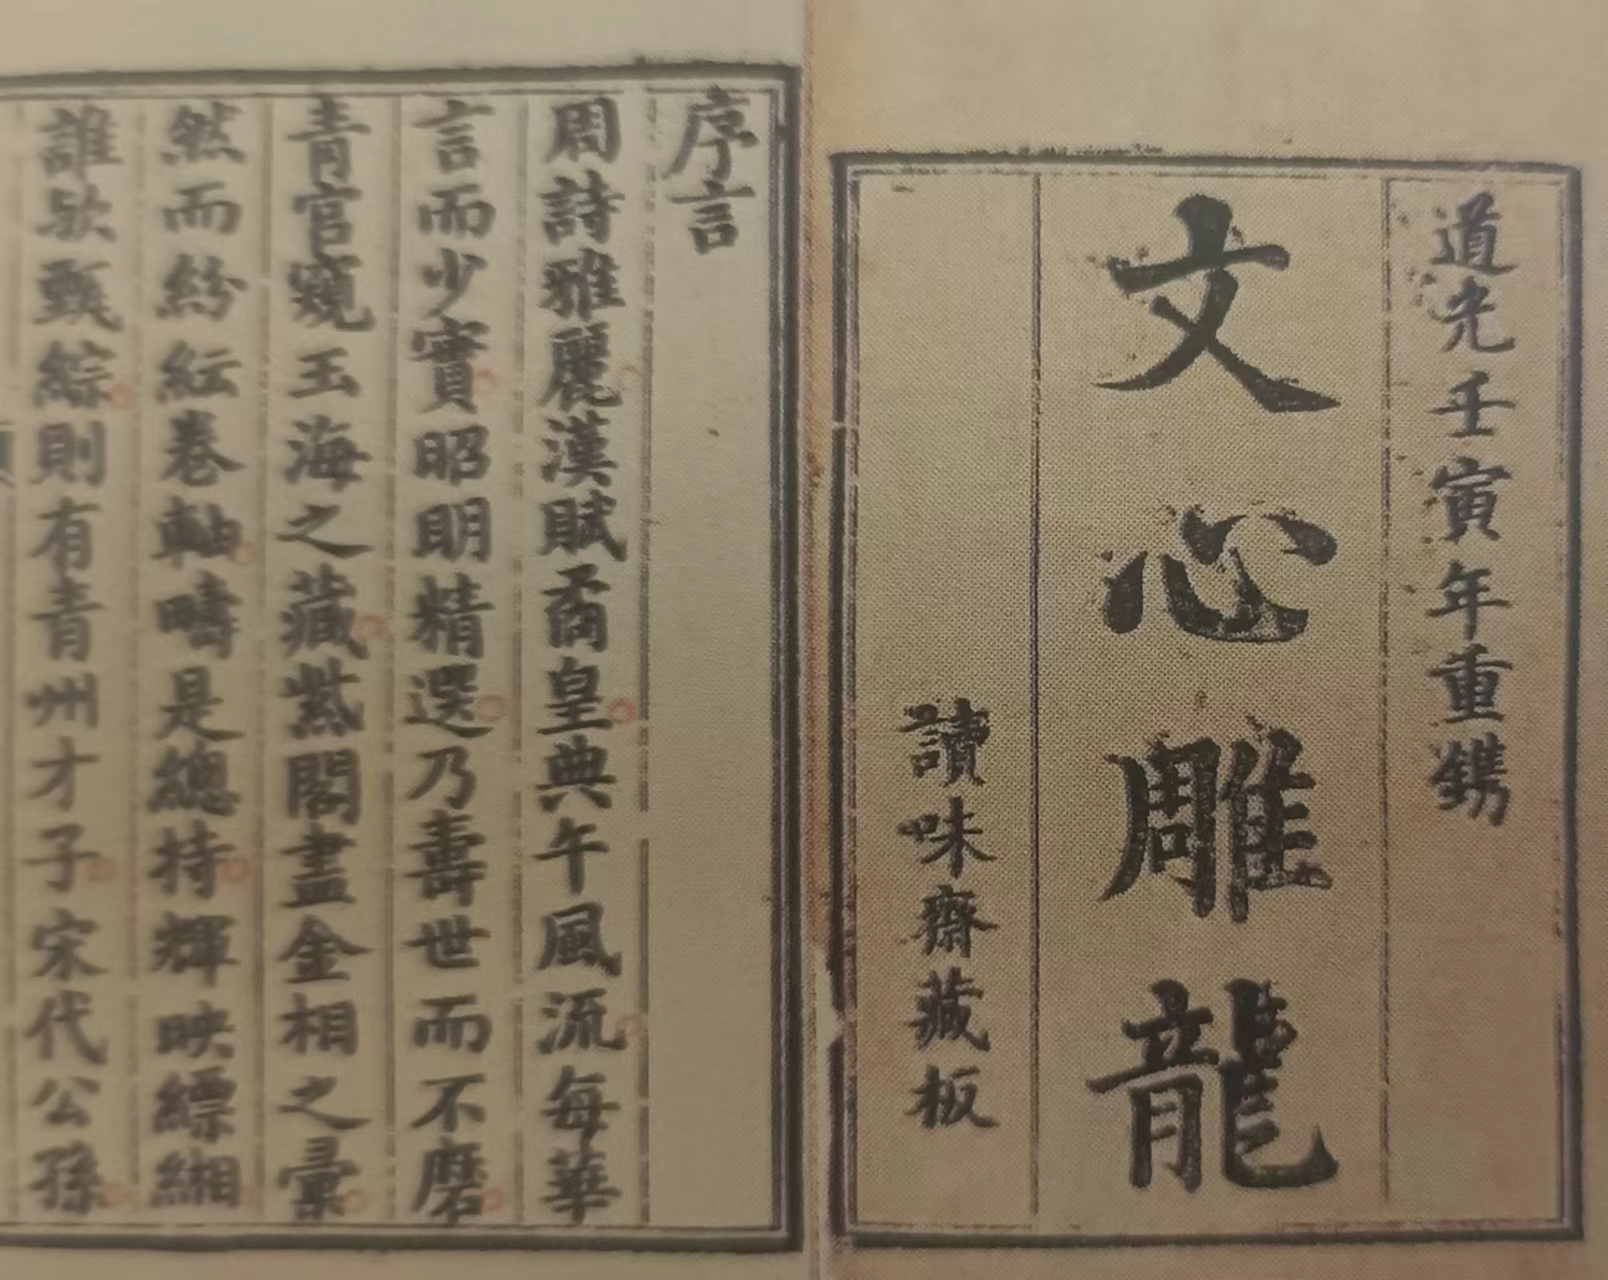 道光壬寅年重鐫
文心雕龍
讀味齋藏板
序言
周詩雅麗漢賦矞皇典午風流每華
言而少實昭明精選乃壽世而不磨
青官窺玉海之藏紫閣盡金相之彙
然而紛紜卷軸疇是總持輝映縹緗
誰欤甄綜則有青州才子宋代公孫